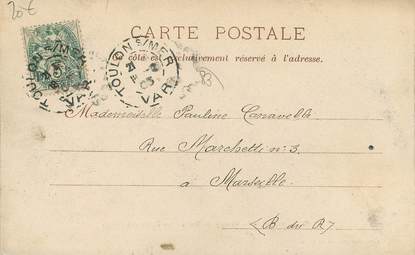 20€
CARTE POSTALE
Ce côté est exclusivement réservé à l'adresse.
TOULON S/MER
VAR
TOULON S/MER
VAR
Mademoiselle Pauline
Rue Marchetti n: 3.
à Marseille.
(B du R)